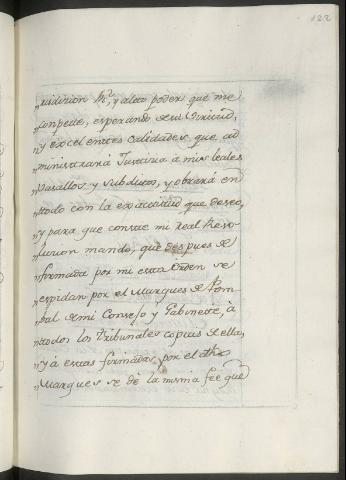 122
"risdicion Rl, y alto poder que me
"conpete, esperando de su Virtud,
"y excelentes calidades, que ad
"ministrará Justicia á mis leales
"Vasallos y Subditos, y obrará en
"todo con la exactitud que deseo,
"y para que conste mi real Reso
"lucion mando, que despues de
"firmada por mi esta Orden se
"espidan por el Marques de Pom-
"bal de mi Consejo y Gabinete, à
"todos los Tribunales copias de ella,
"y á estas firmadas por el dho
"Marques se dé la misma feé que